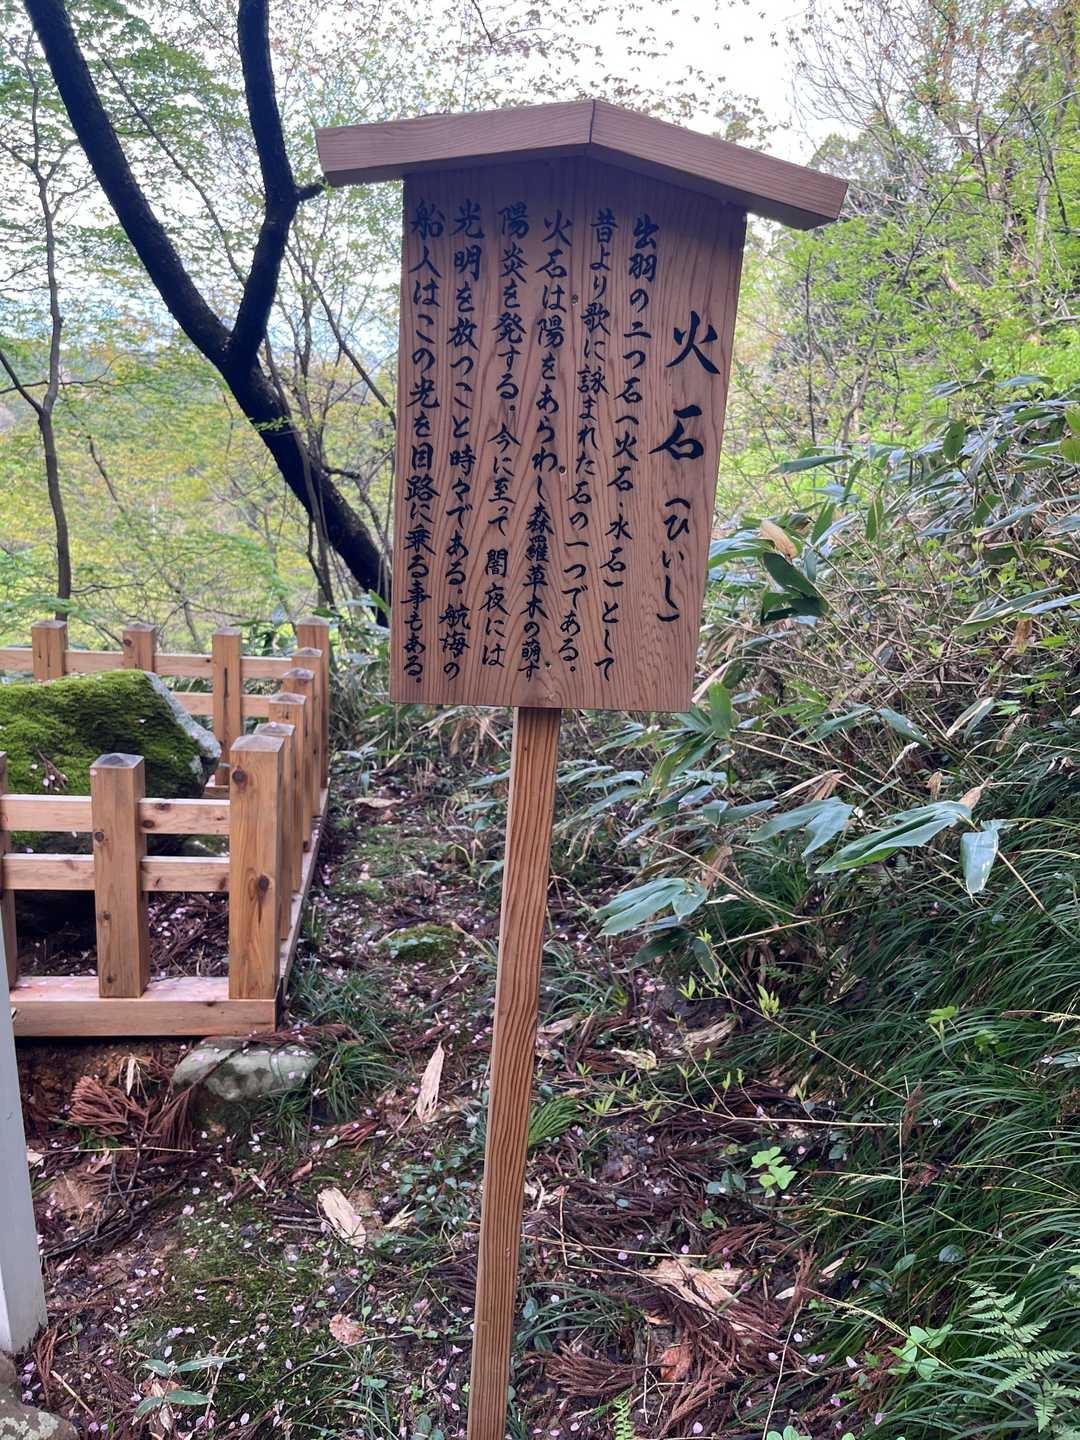 火石（ひいし）
出羽の二つ石（火石・水石）として
昔より歌に詠まれた石の一つである。
火石は陽をあらわし森羅草木の萌す
陽炎を発する。今に至って闇夜には
光明を放つこと時々である。航海の
船人はこの光を目路に乗る事もある。